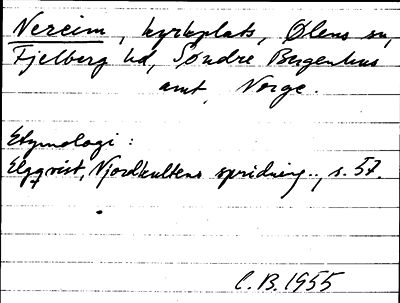 Nereim, kyrkplats, Ølens sn,
Fjelberg hd, Søndre Bergenhus
amt, Norge.
Etymologi:
Elgqvist, Njordkultens spridning.., s. 57.
C.B. 1955